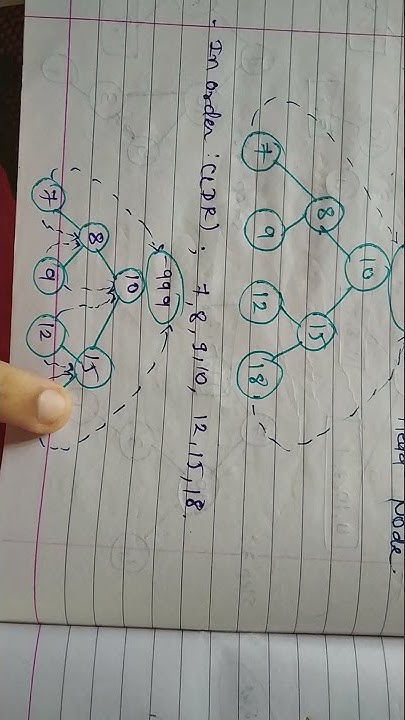 Head Node.
10
8 15
7 9 12 18
Inorder : (LDR) : 7, 8, 9, 10, 12, 15, 18.
999
10
8 15
7 9 12